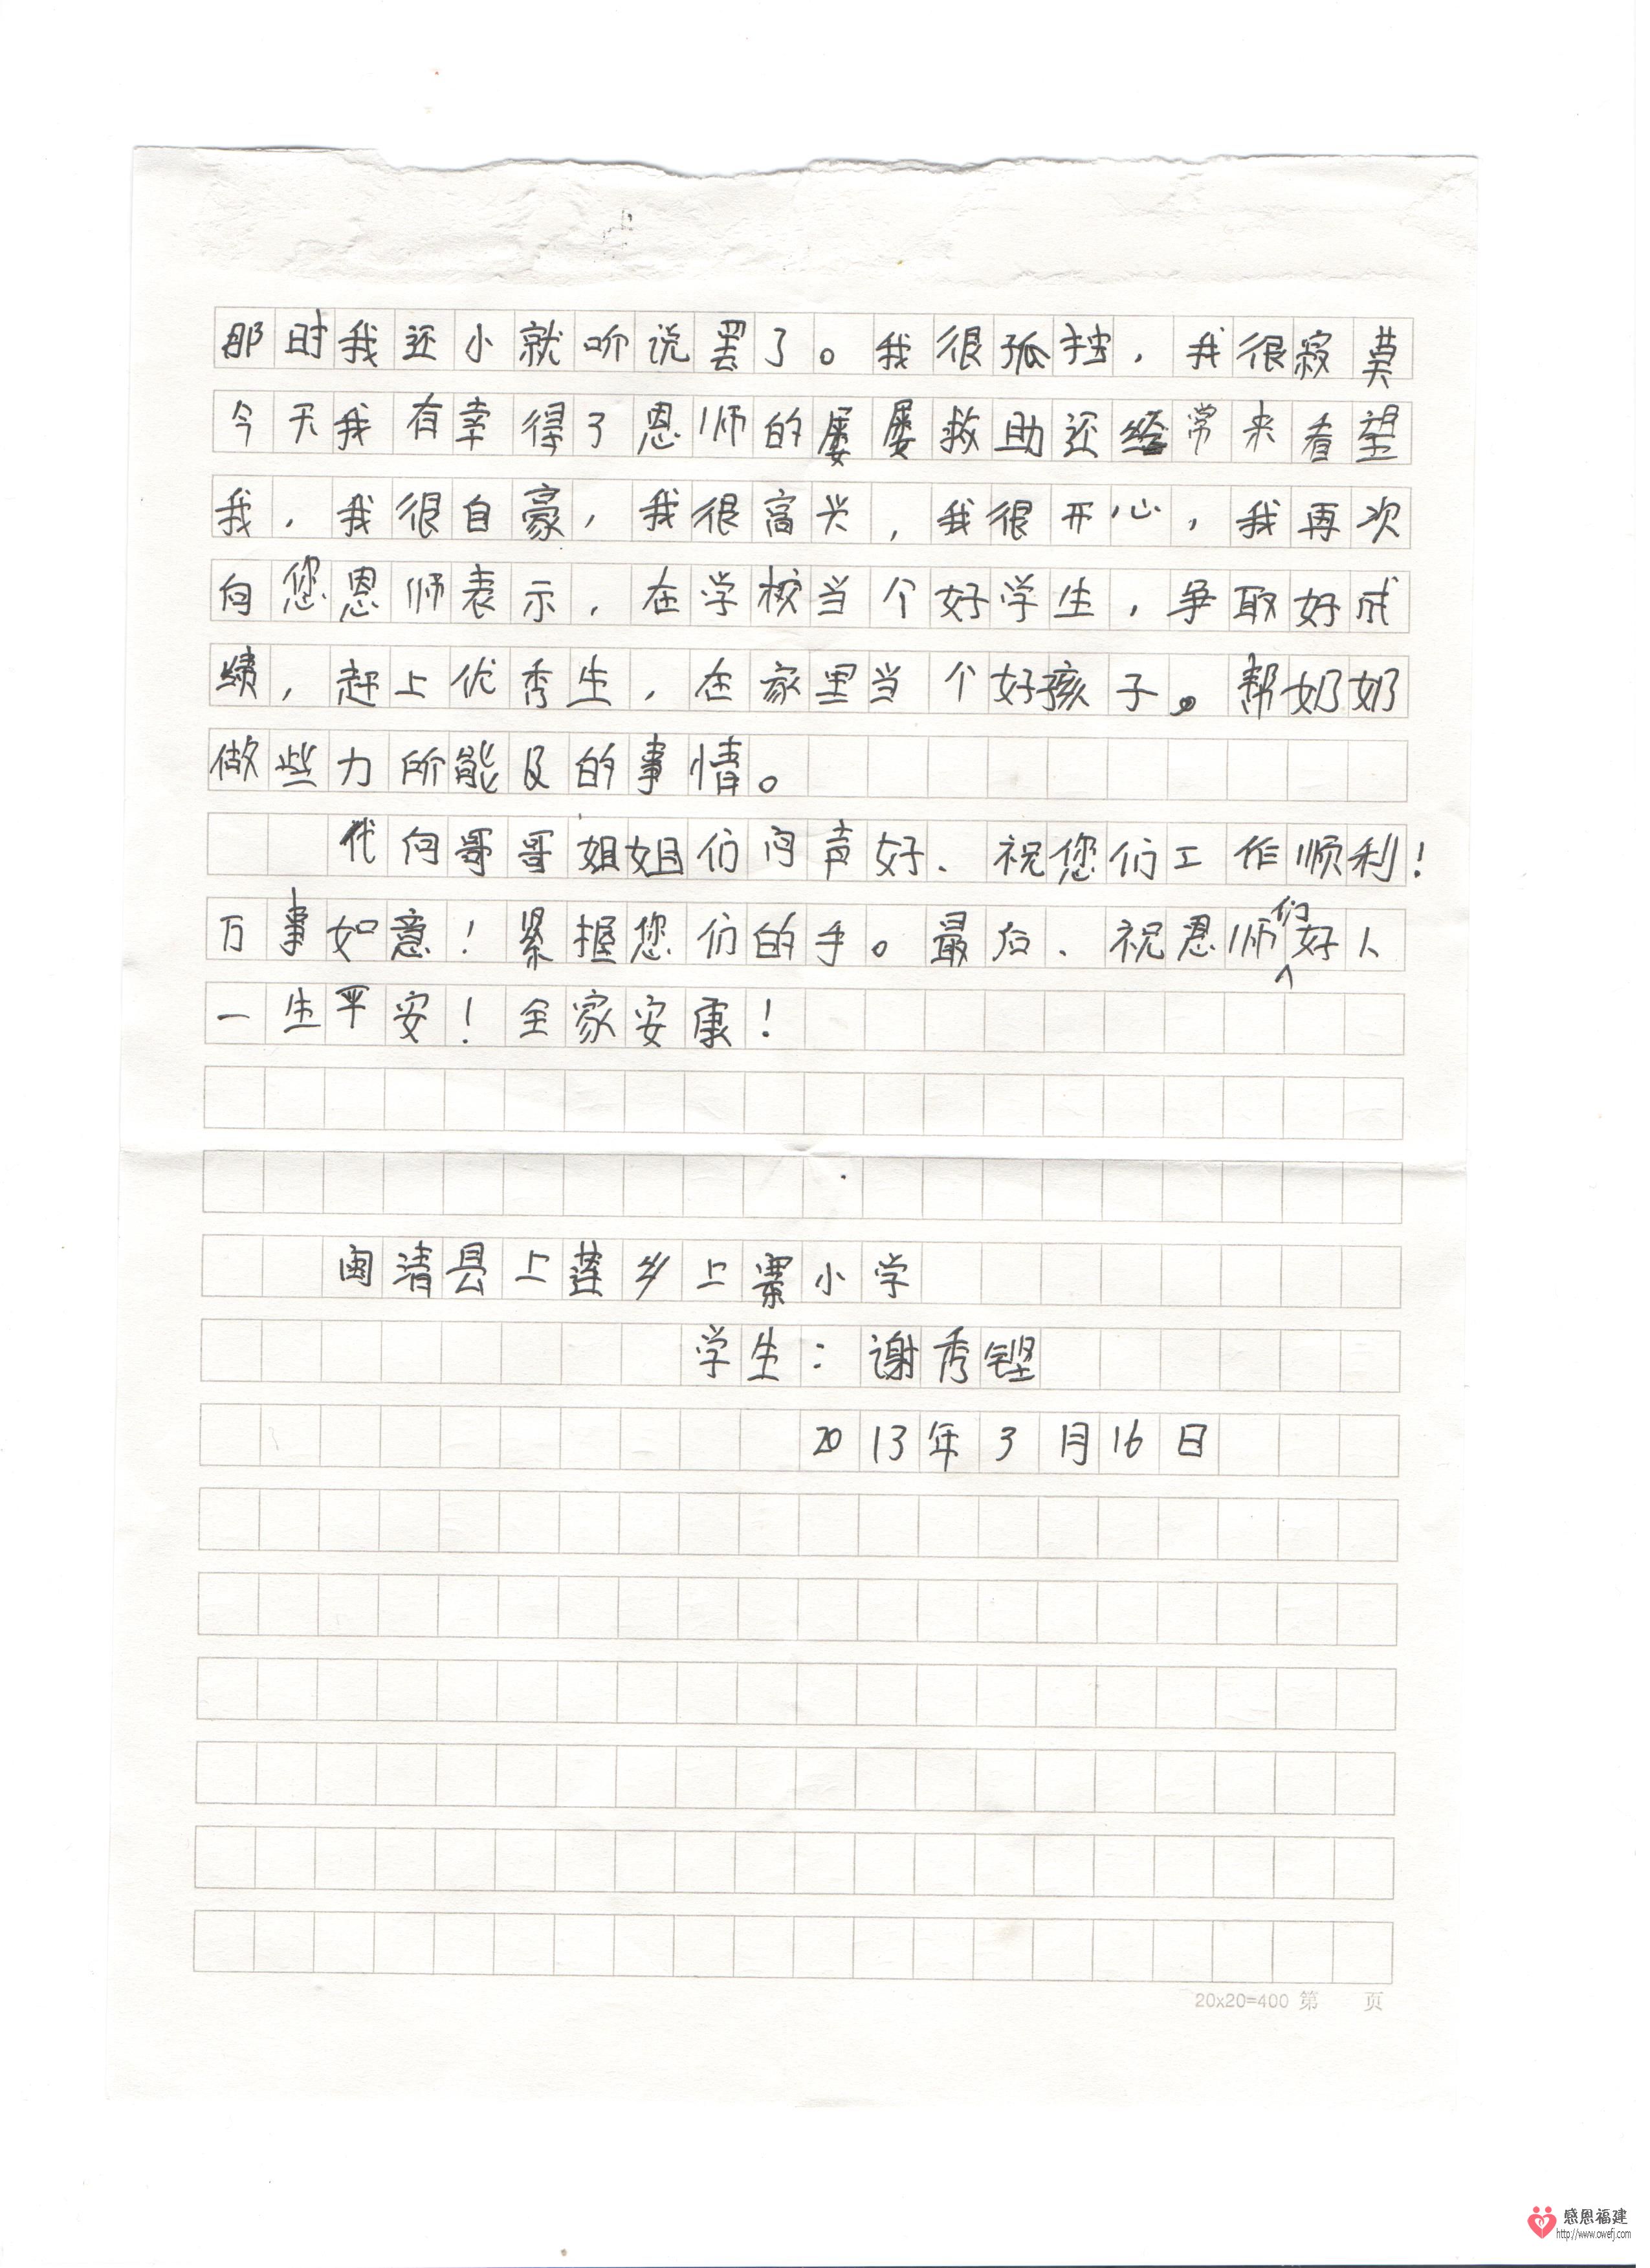 那时我还小就听说罢了。我很孤独，我很寂莫
今天我有幸得了恩师的屡屡救助还经常来看望
我，我很自豪，我很高兴，我很开心，我再次
向您恩师表示，在学校当个好学生，争取好成
绩，赶上优秀生，在家里当个好孩子。帮奶奶
做些力所能及的事情。
代向哥哥姐姐们问声好、祝您们工作顺利！
万事如意！紧握您们的手。最后、祝恩师们好人
一生平安！全家安康！
闽清县上莲乡上寨小学
学生：谢秀铿
2013年3月16日
20x20=400 第 页
感恩福建
http://www.owefj.com